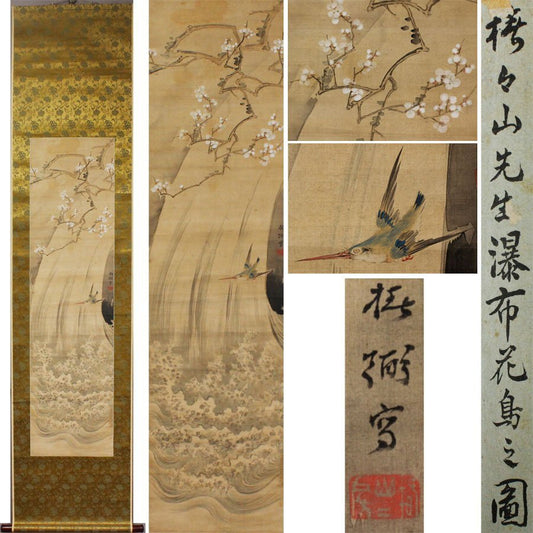 椿々山先生瀑布花鳥之圖
椿弼写